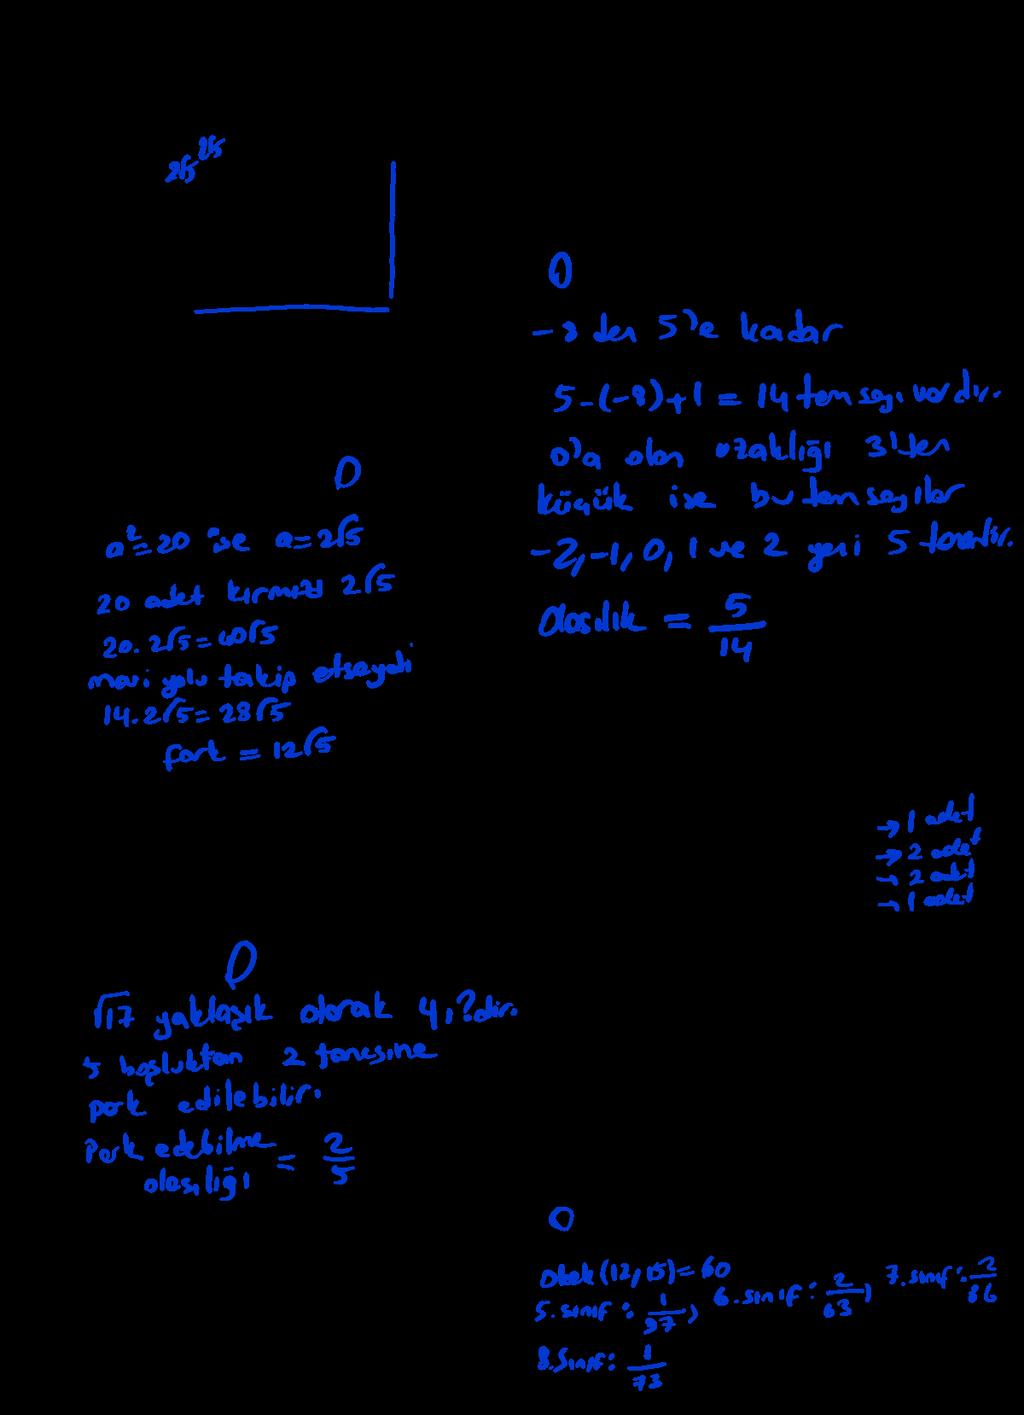 2√5 2√5
a²=20 ise a=2√5
20 adet kırmızı 2√5
20.2√5=40√5
mavi yolu takip etseydi
14.2√5=28√5
fark = 12√5
√17 yaklaşık olarak 4,?dir.
5 boşluktan 2 tanesine
park edilebilir.
Park edebilme olasılığı = 2/5
-8 den 5'e kadar
5-(-8)+1 = 14 tam sayı vardır.
0'a olan uzaklığı 3'ten
küçük ise bu tam sayılar
-2,-1,0,1 ve 2 yani 5 tanedir.
Olasılık = 5/14
→ 1 adet
→ 2 adet
→ 2 adet
→ 1 adet
Okek(12,15)=60
5.sınıf: 1/97, 6.sınıf: 2/63, 7.sınıf: 2/86
8.Sınıf: 1/73